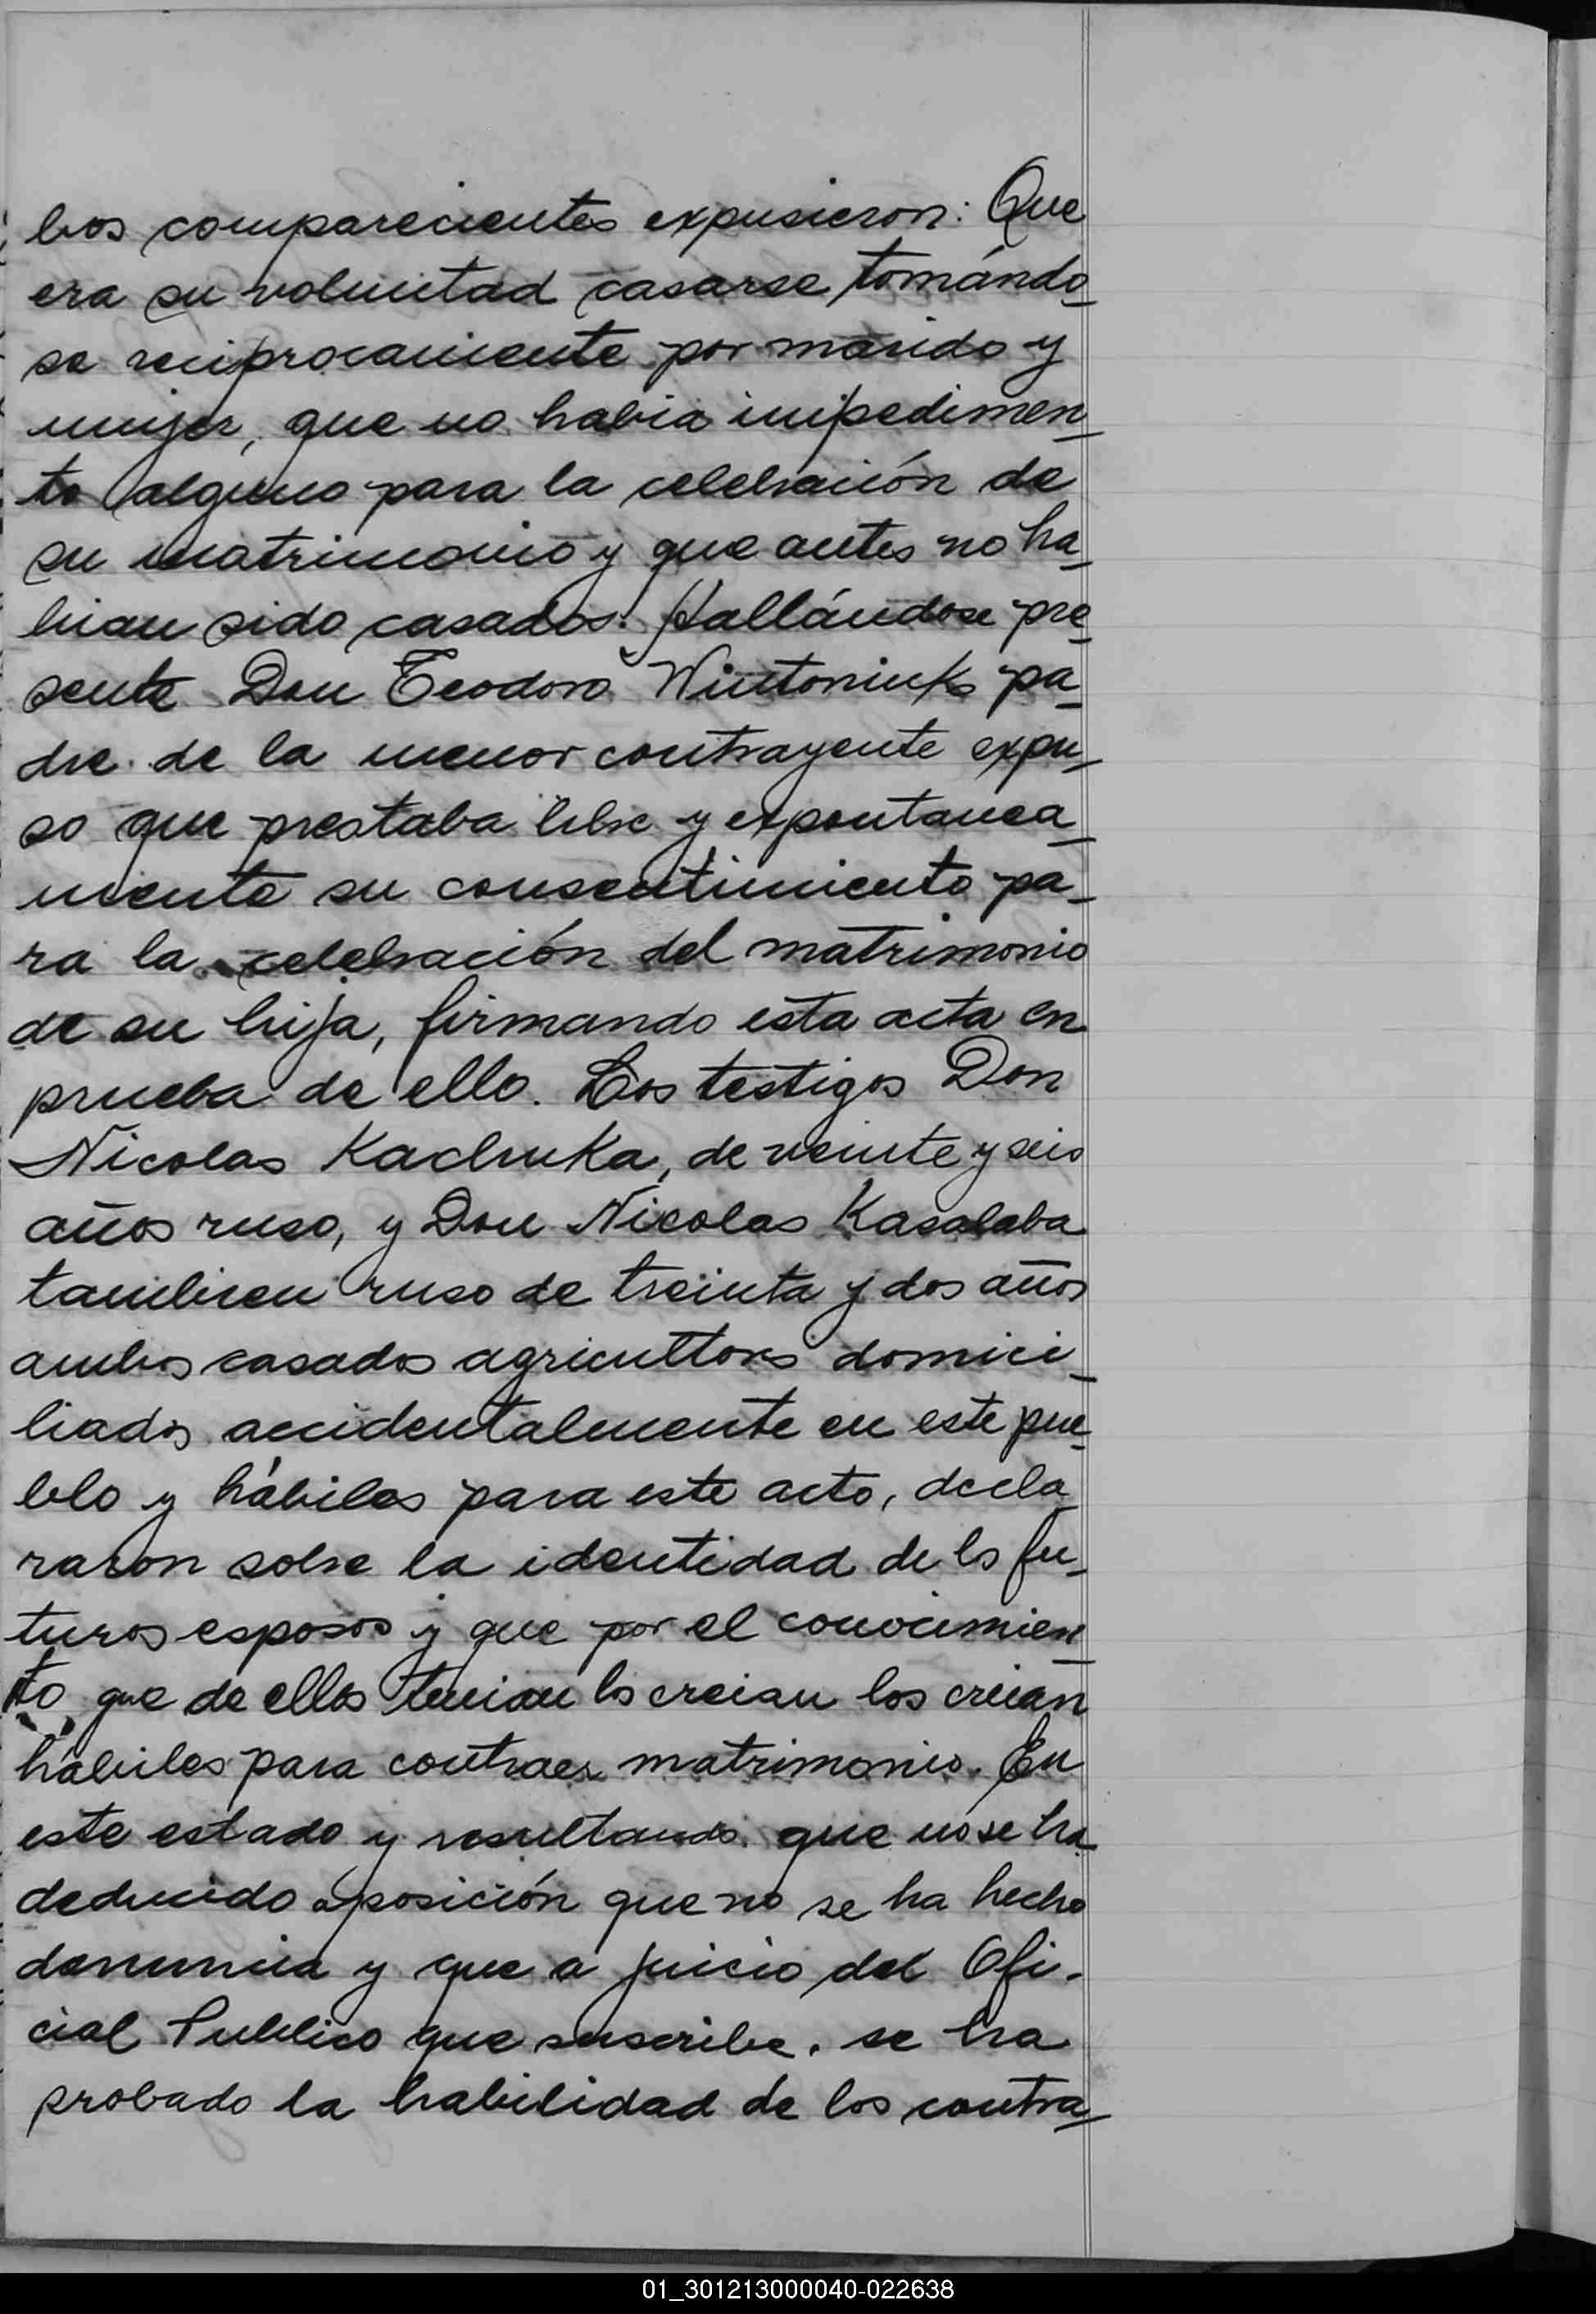 bos comparecientes expusieron: Que
era su voluntad casarse tomándo_
se reciprocamente por marido y
mujer, que no habia impedimen_
to alguno para la celebración de
su matrimonio y que antes no ha_
bian sido casados. Hallándose pre_
sente Don Teodoro Wintoniuk pa_
dre de la menor contrayente expu_
so que prestaba libre y expontanea_
mente su consentimiento pa_
ra la celebración del matrimonio
de su hija, firmando esta acta en
prueba de ello. Los testigos Don
Nicolas Kachuka, de veinte y seis
años ruso, y Don Nicolas Kasalaba
tambien ruso de treinta y dos años
ambos casados agricultores domici_
liados accidentalmente en este pue_
blo y hábiles para este acto, decla_
raron sobre la identidad de los fu_
turos esposos y que por el conocimien_
to que de ellos tenian los creian los creian
hábiles para contraer matrimonio. En
este estado y resultando que no se ha
deducido oposición que no se ha hecho
denuncia y que a juicio del Ofi-
cial Publico que suscribe. se ha
probado la habilidad de los contra_
01_301213000040-022638